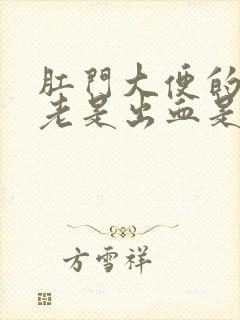 肛門大便的
老是出血是
方雪祥